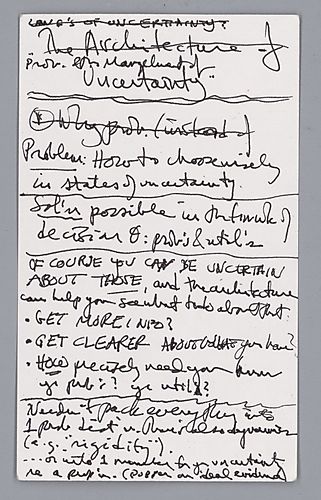 LAND'S OF UNCERTAINTY?
"The Architecture of
Prob. & Management of
Uncertainty"
Why prob. (instead of
Problem: How to choose wisely
in states of uncertainty.
Sol'n possible in of
decision θ: prob's & util's
OF COURSE YOU CAN BE UNCERTAIN
ABOUT THOSE, and the architecture
can help you see what to do about that.
• GET MORE INFO?
• GET CLEARER ABOUT WHAT you have?
• HOW precisely need you know
yr prob's? yr utils?
Needn't pack everything into
1 prob dist'n. also dynamics
(e.g. "rigidity").
... or into 1 number (e.g. uncertainty
re a prop'n. (POPPER on ideal evidence)